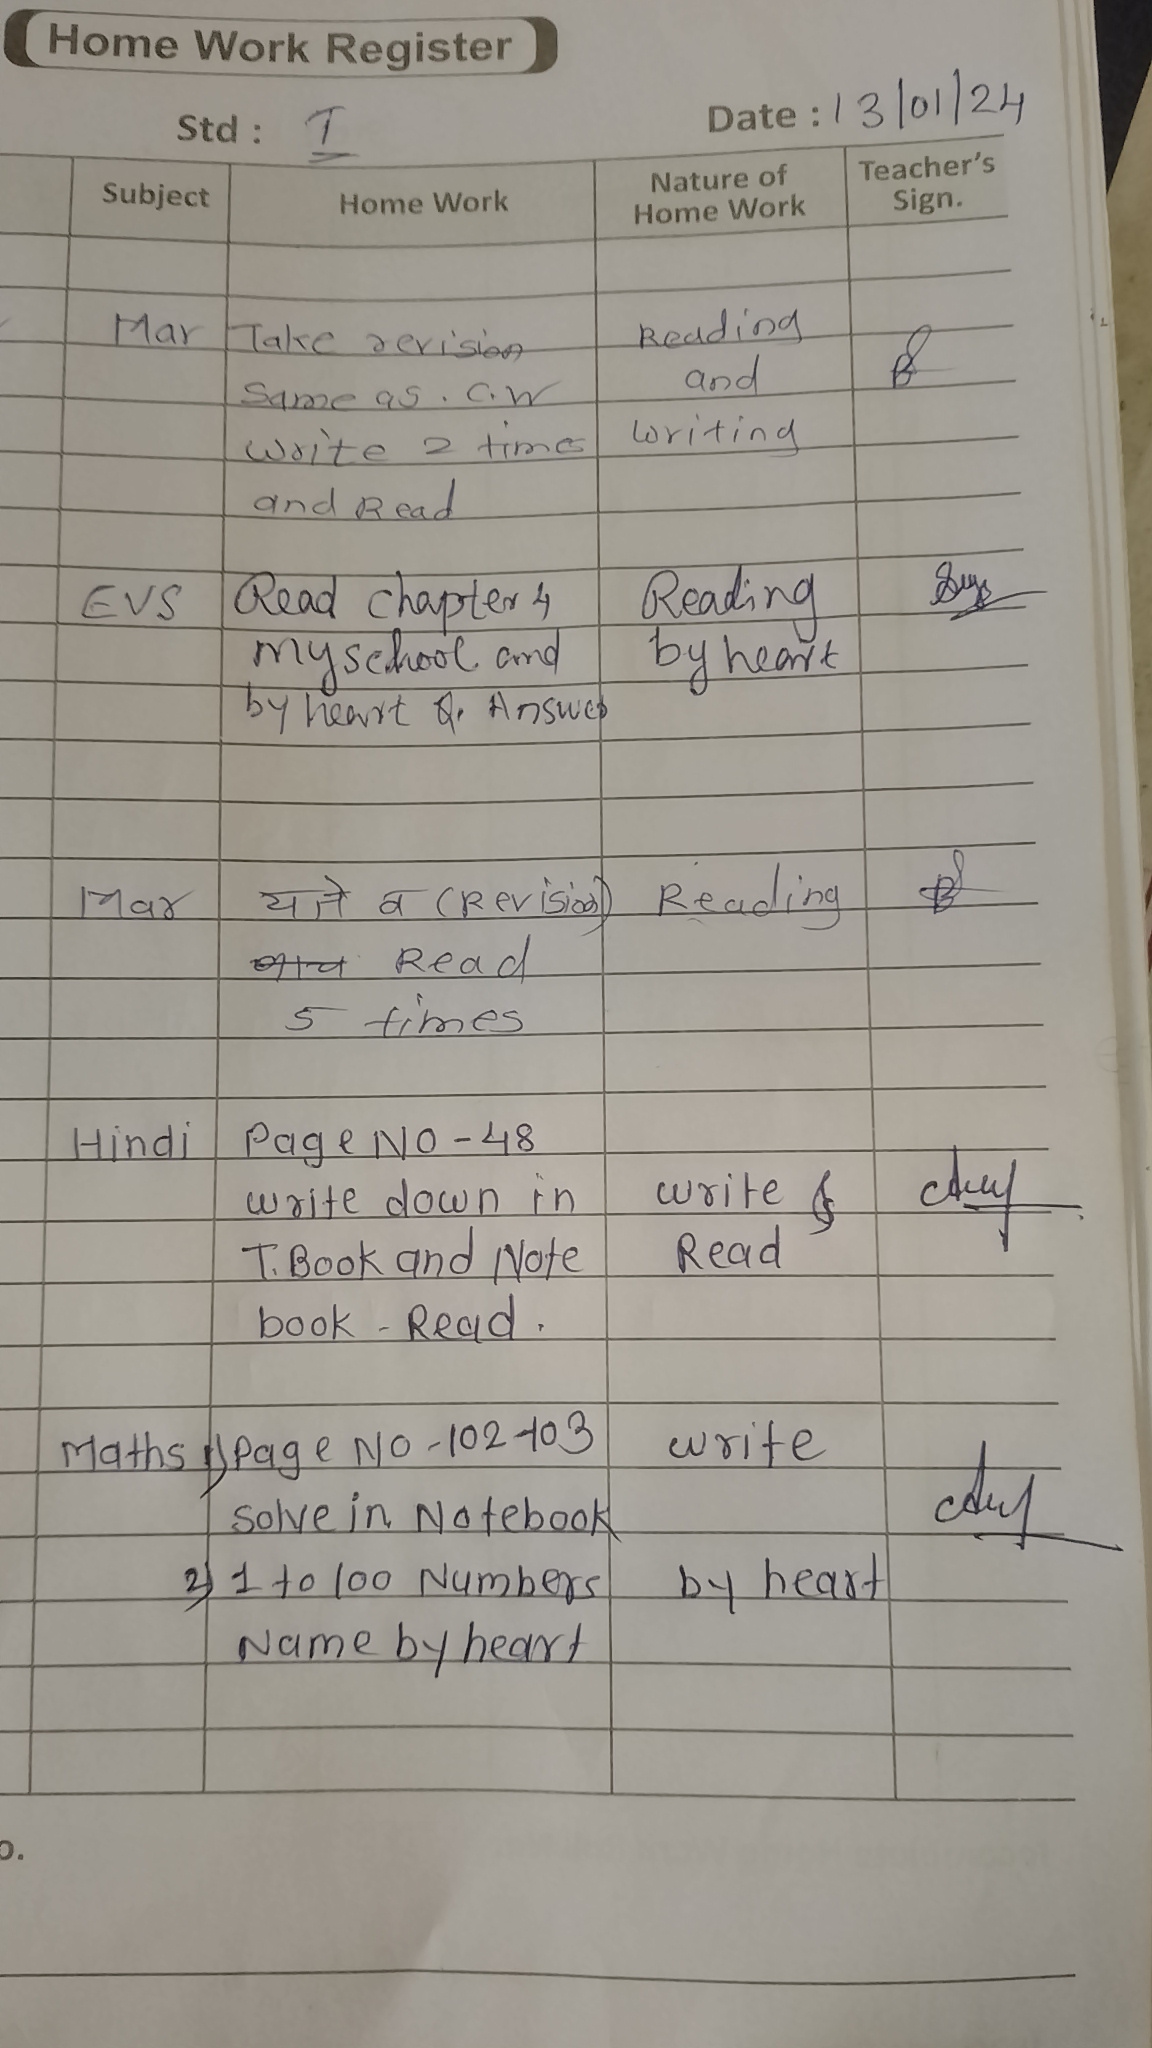 Home Work Register
Std : I Date : 13/01/24
Subject Home Work Nature of Home Work Teacher's Sign.
Mar Take revision Reading
Same as. C.W and
Write 2 times Writing
and Read
EVS Read chapter 4 Reading
my school and by heart
by heart Q. Answer
Mar व (Revision) Reading
Read
5 times
Hindi Page NO - 48
write down in write &
T. Book and Note Read
book - Read.
Maths 1) Page NO - 102 - 103 write
solve in Notebook
2) 1 to 100 Numbers by heart
Name by heart